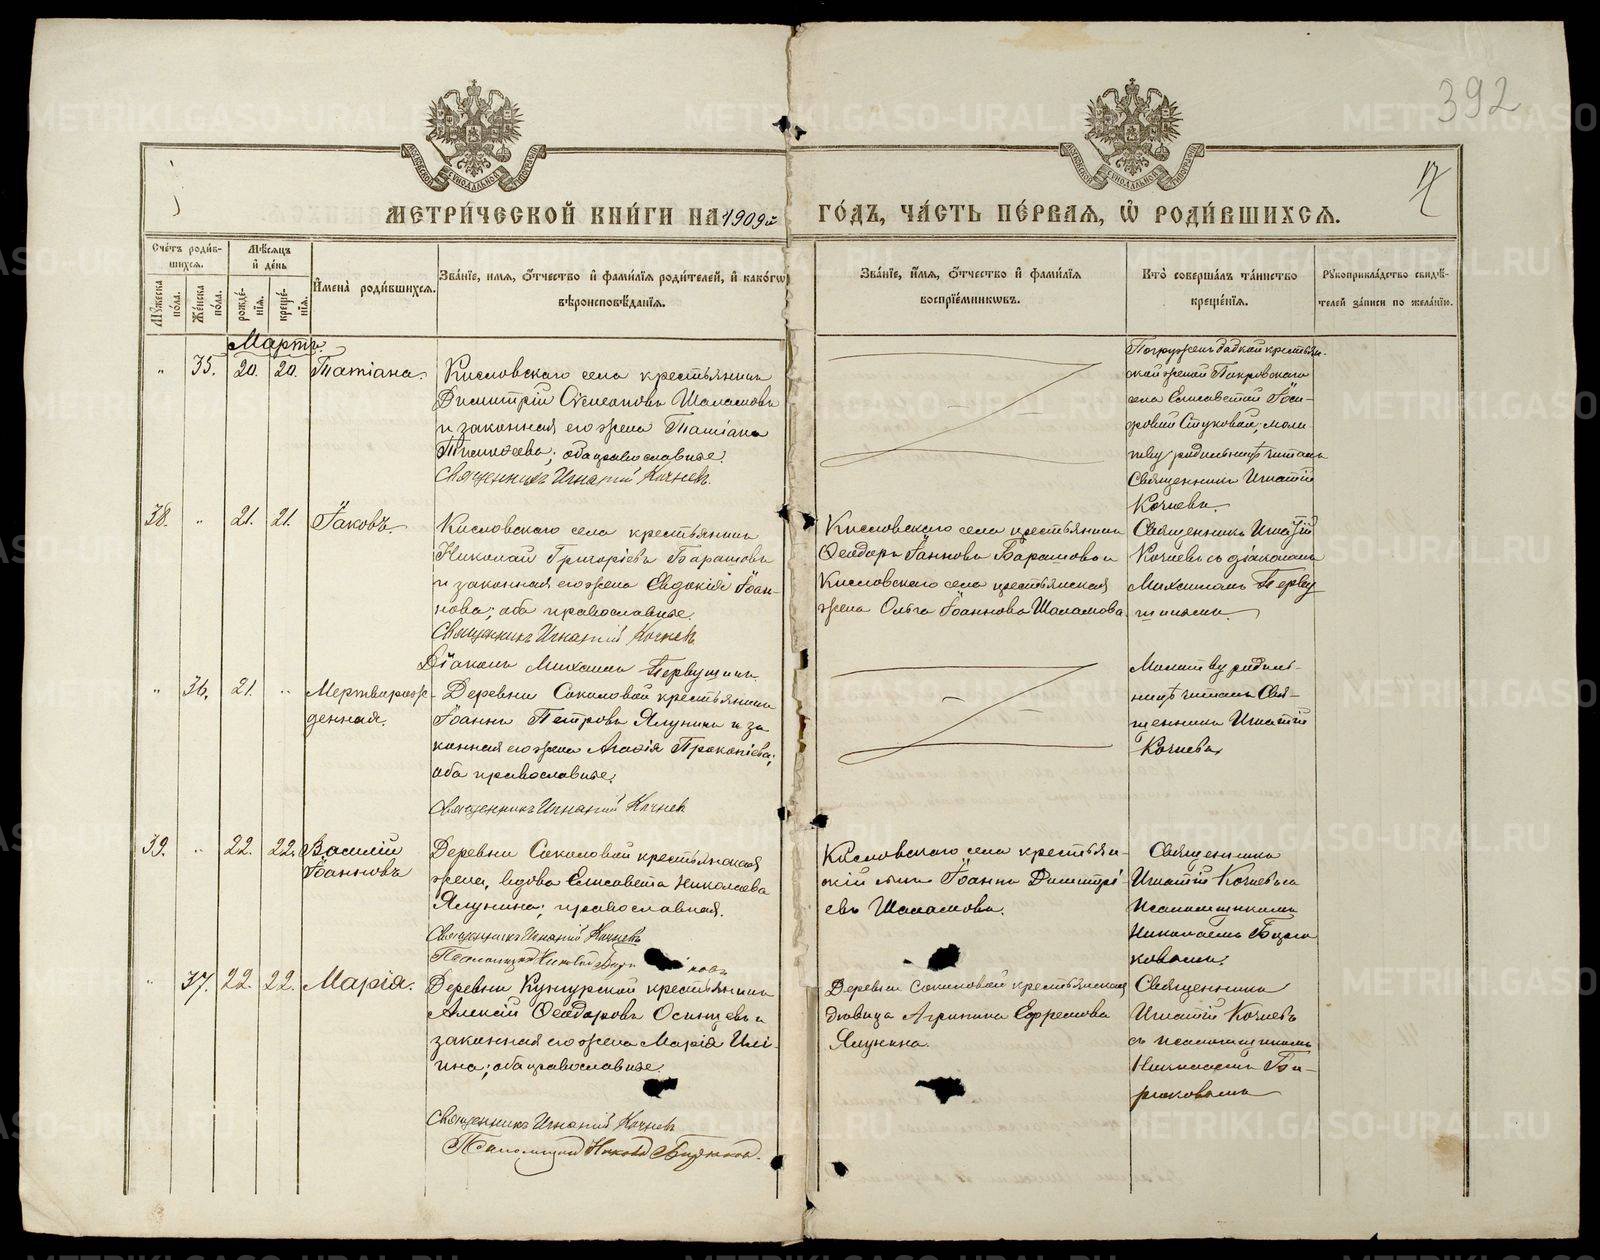 392
17
МЕТРИ́ЧЕСКОЙ КНИ́ГИ НА 1909й ГО́ДЪ, ЧА́СТЬ ПЕ́РВАЯ, Ѽ РОДИ́ВШИХСЯ.
Сче́тъ роди́в-
шихся.
Мѣ́сяцъ
и҆ де́нь
Му́жеска
по́ла.
Же́нска
по́ла.
рожде́-
нїя.
креще́-
нїя.
И҆мена̀ роди́вшихся.
Зва́нїе, и҆мя, ѻ҆́тчество и҆ фами́лїя роди́телей, и҆ како́гѡ
вѣроисповѣ́данїя.
Зва́нїе, и҆́мя, ѻ҆́тчество и҆ фами́лїя
воспрїе́мникѡвъ.
Кто̀ соверша́лъ та́инство
креще́нїя.
Рꙋкоприкла́дство свидѣ́-
телей за́писи по жела́нїю.
Мартъ.
" 35. 20. 20. Татіана.
Кисловскаго села крестьянинъ
Димитрій Стефановъ Шаламовъ
и законная его жена Татіана
Тимоѳеева; оба православные.
Священникъ Игнатій Кочневъ.
Погружена бабкой крестьян-
ской женой Покровскаго
села Елисаветой
Стуковой; моли
тву родильницѣ читалъ
Священникъ Игнатій
Кочневъ.
38. " 21. 21. Іаковъ.
Кисловскаго села крестьянинъ
Николай Григоріевъ Барашовъ
и законная его жена Евдокія Іоан-
нова; оба православные.
Священникъ Игнатій Кочневъ
Діаконъ Михаилъ Первушинъ.
Кисловскаго села крестьянинъ
Ѳеодоръ Іоанновъ Барашовъ и
Кисловскаго села крестьянская
жена Ольга Іоаннова Шаламова.
Священникъ Игнатій
Кочневъ съ діакономъ
Михаиломъ Перву
шинымъ.
" 36. 21. " Мертворож-
денная.
Деревни Соколовой крестьянинъ
Іоаннъ Петровъ Ялунинъ и за
конная его жена Агаѳія Прокопіева;
оба православные.
Священникъ Игнатій Кочневъ
Молитву родиль-
ницѣ читалъ Свя-
щенникъ Игнатій
Кочневъ.
39. " 22. 22. Василій
Іоанновъ
Деревни Соколовой крестьянская
жена, вдова Елисавета Николаева
Ялунина; православная.
Священникъ Игнатій Кочневъ
Псаломщикъ Николай
Кисловскаго села крестьян-
скій сынъ Іоаннъ Димитрі-
евъ Шаламовъ.
Священникъ
Игнатій Кочневъ съ
псаломщикомъ
Николаемъ Бирю
ковымъ.
" 37. 22. 22. Марія.
Деревни Кунгурской крестьянинъ
Алексій Ѳеодоровъ Осинцевъ и
законная его жена Марія Илі-
ина; оба православные.
Священникъ Игнатій Кочневъ
Псаломщикъ Николай Бирюковъ.
Деревни Соколовой крестьянская
дѣвица Агрипина Ефремова
Ялунина.
Священникъ
Игнатій Кочневъ
съ псаломщикомъ
Николаемъ Би-
рюковымъ